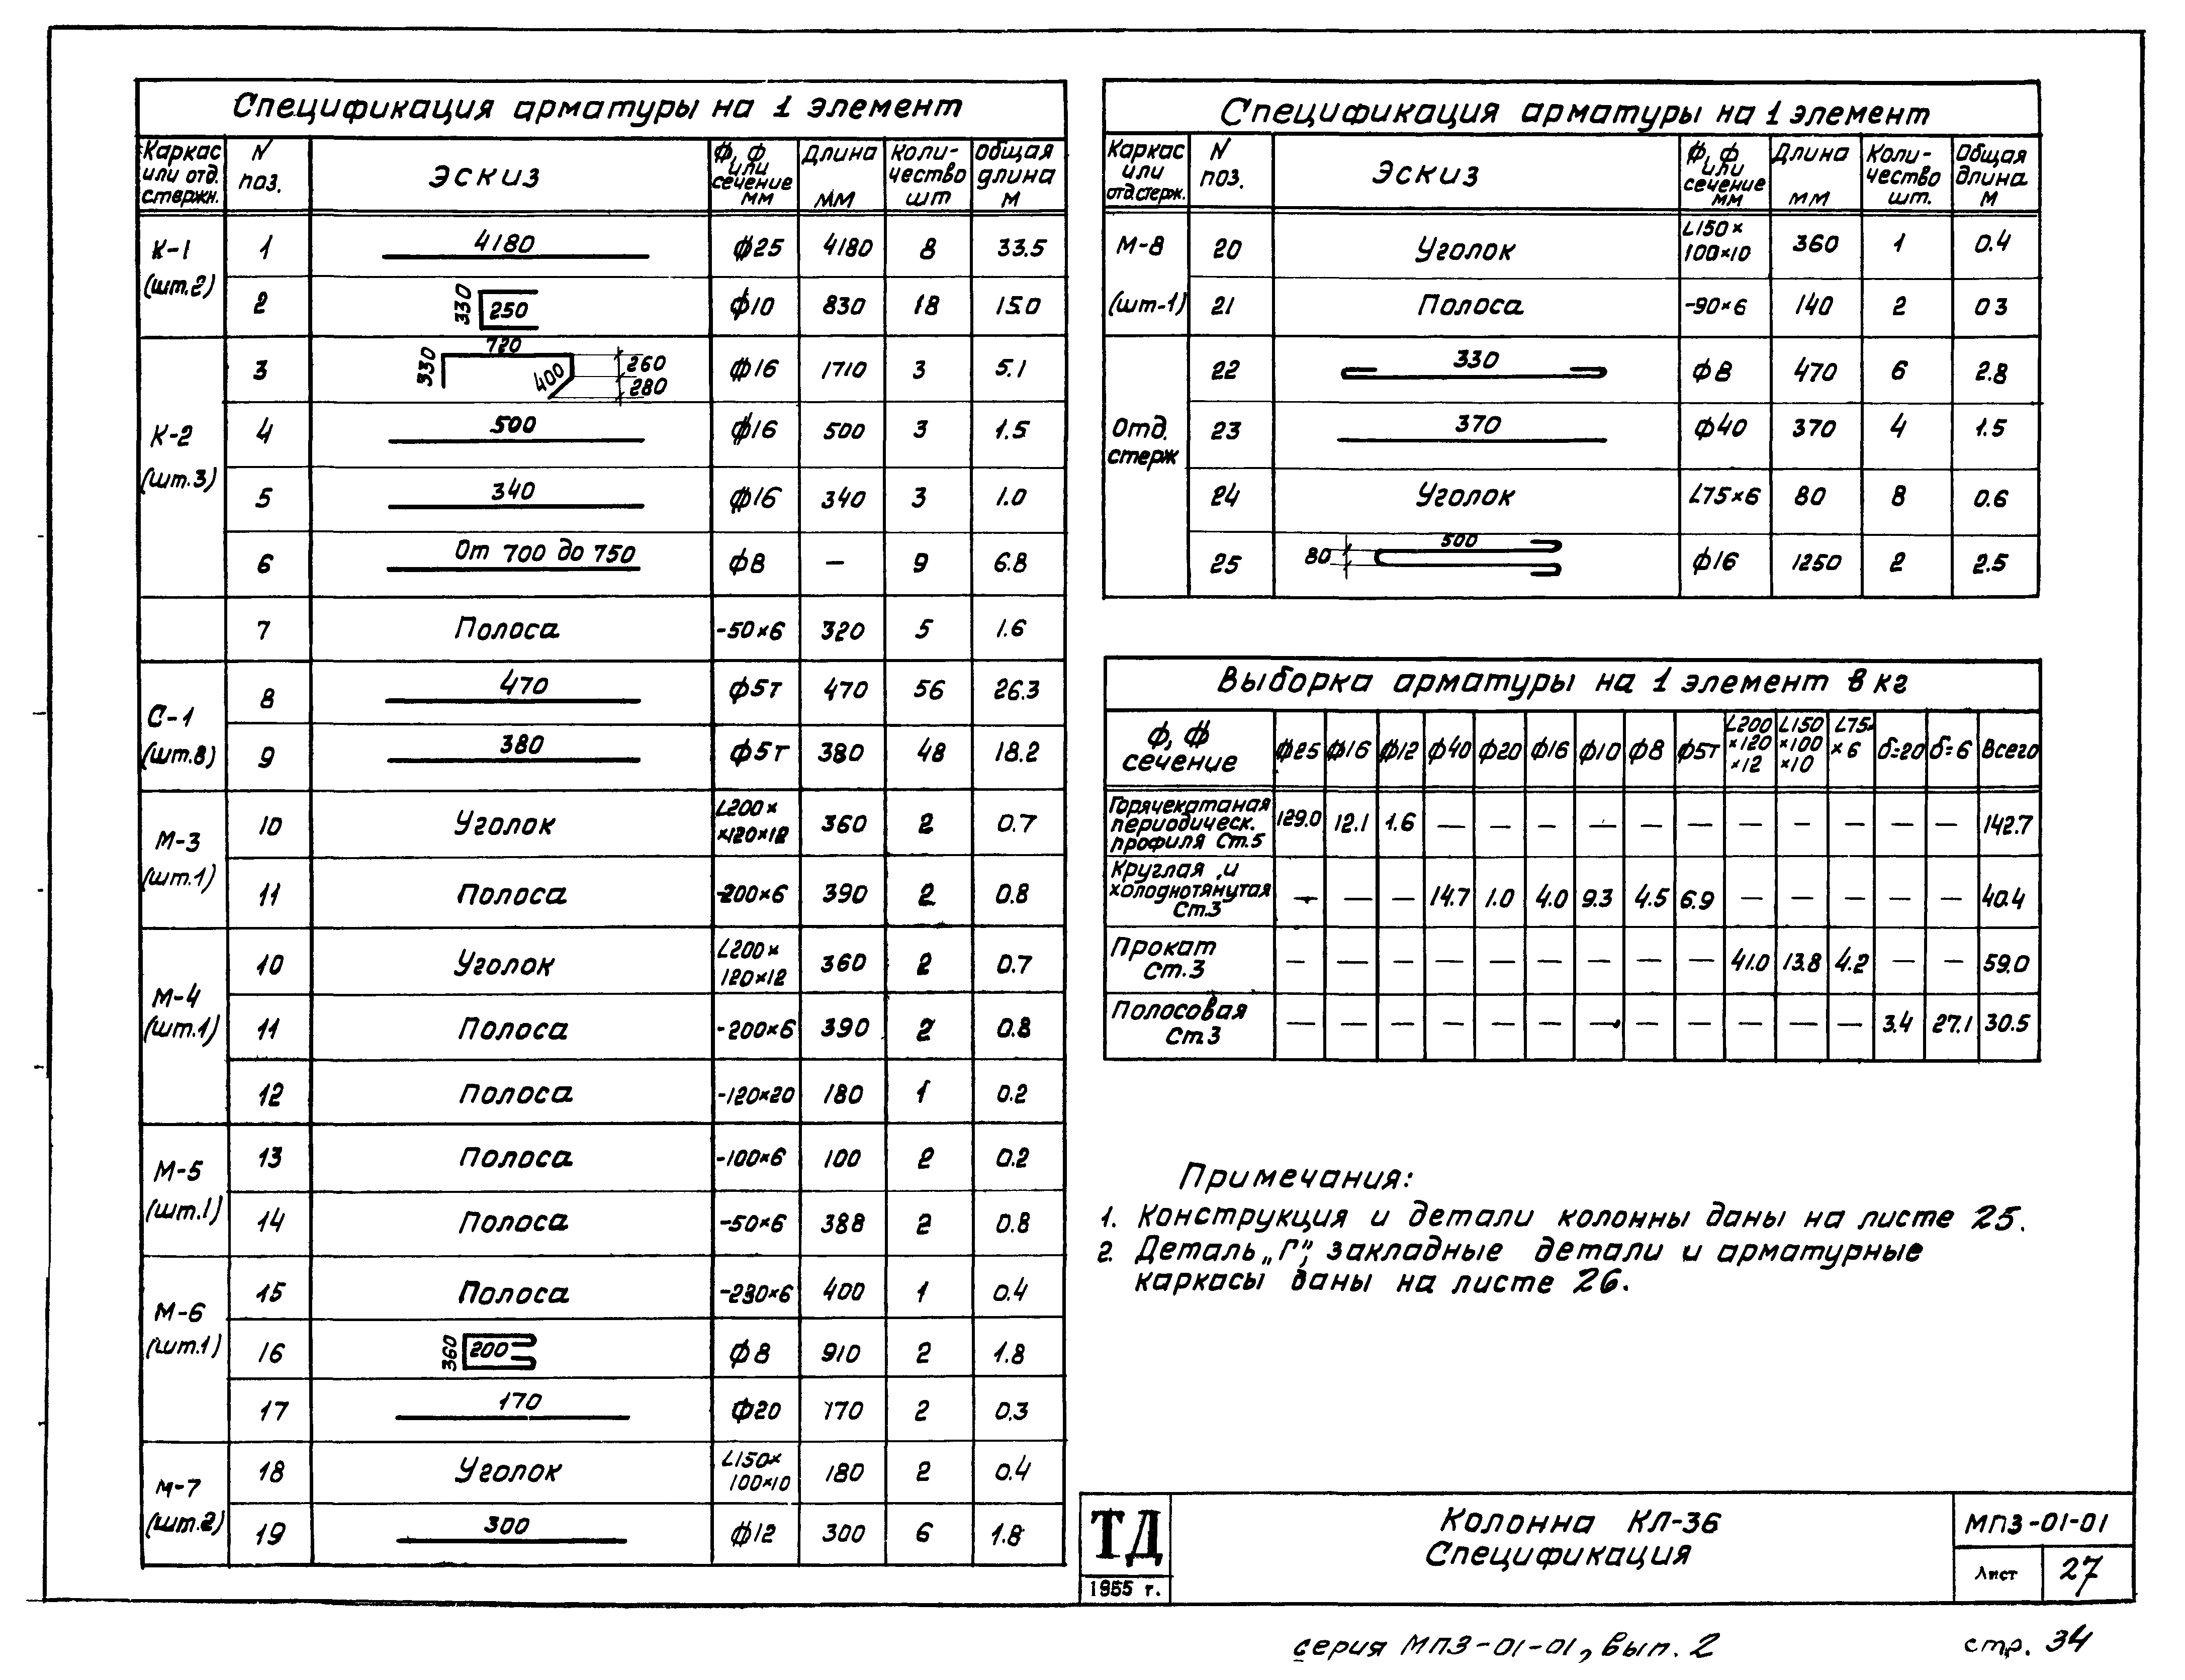 Спецификация арматуры на 1 элемент
Каркас или отд. стержн. | N поз. | Эскиз | ф, ф или сечение мм | Длина мм | Коли-чество шт | Общая длина м
К-1 (шт.2) | 1 | 4180 | ф25 | 4180 | 8 | 33.5
2 | 330 250 | ф10 | 830 | 18 | 15.0
К-2 (шт.3) | 3 | 330 720 400 260 280 | ф16 | 1710 | 3 | 5.1
4 | 500 | ф16 | 500 | 3 | 1.5
5 | 340 | ф16 | 340 | 3 | 1.0
6 | От 700 до 750 | ф8 | — | 9 | 6.8
7 | Полоса | -50×6 | 320 | 5 | 1.6
С-1 (шт.8) | 8 | 470 | ф5т | 470 | 56 | 26.3
9 | 380 | ф5т | 380 | 48 | 18.2
М-3 (шт.1) | 10 | Уголок | L200× ×120×12 | 360 | 2 | 0.7
11 | Полоса | -200×6 | 390 | 2 | 0.8
М-4 (шт.1) | 10 | Уголок | L200× 120×12 | 360 | 2 | 0.7
11 | Полоса | -200×6 | 390 | 2 | 0.8
12 | Полоса | -120×20 | 180 | 1 | 0.2
М-5 (шт.1) | 13 | Полоса | -100×6 | 100 | 2 | 0.2
14 | Полоса | -50×6 | 388 | 2 | 0.8
М-6 (шт.1) | 15 | Полоса | -230×6 | 400 | 1 | 0.4
16 | 360 200 | ф8 | 910 | 2 | 1.8
17 | 170 | ф20 | 170 | 2 | 0.3
М-7 (шт.2) | 18 | Уголок | L150× 100×10 | 180 | 2 | 0.4
19 | 300 | ф12 | 300 | 6 | 1.8
Спецификация арматуры на 1 элемент
Каркас или отд.стерж. | N поз. | Эскиз | ф, ф или сечение мм | Длина мм | Коли-чество шт. | Общая длина м
М-8 (шт-1) | 20 | Уголок | L150× 100×10 | 360 | 1 | 0.4
21 | Полоса | -90×6 | 140 | 2 | 0 3
Отд. стерж | 22 | 330 | ф8 | 470 | 6 | 2.8
23 | 370 | ф40 | 370 | 4 | 1.5
24 | Уголок | L75×6 | 80 | 8 | 0.6
25 | 80 500 | ф16 | 1250 | 2 | 2.5
Выборка арматуры на 1 элемент в кг
ф, ф сечение | ф25 | ф16 | ф12 | ф40 | ф20 | ф16 | ф10 | ф8 | ф5т | L200 ×120 ×12 | L150 ×100 ×10 | L75× ×6 | δ=20 | δ=6 | Всего
Горячекатаная периодическ. профиля Ст.5 | 129.0 | 12.1 | 1.6 | — | — | — | — | — | — | — | — | — | — | — | 142.7
Круглая и холоднотянутая Ст.3 | — | — | — | 14.7 | 1.0 | 4.0 | 9.3 | 4.5 | 6.9 | — | — | — | — | — | 40.4
Прокат Ст.3 | — | — | — | — | — | — | — | — | — | 41.0 | 13.8 | 4.2 | — | — | 59.0
Полосовая Ст.3 | — | — | — | — | — | — | — | — | — | — | — | — | 3.4 | 27.1 | 30.5
Примечания:
1. Конструкция и детали колонны даны на листе 25.
2. Деталь „Г", закладные детали и арматурные
каркасы даны на листе 26.
ТД
1955 г.
Колонна КЛ-36
Спецификация
МПЗ-01-01
Лист 27
серия МПЗ-01-01, вып. 2
стр. 34